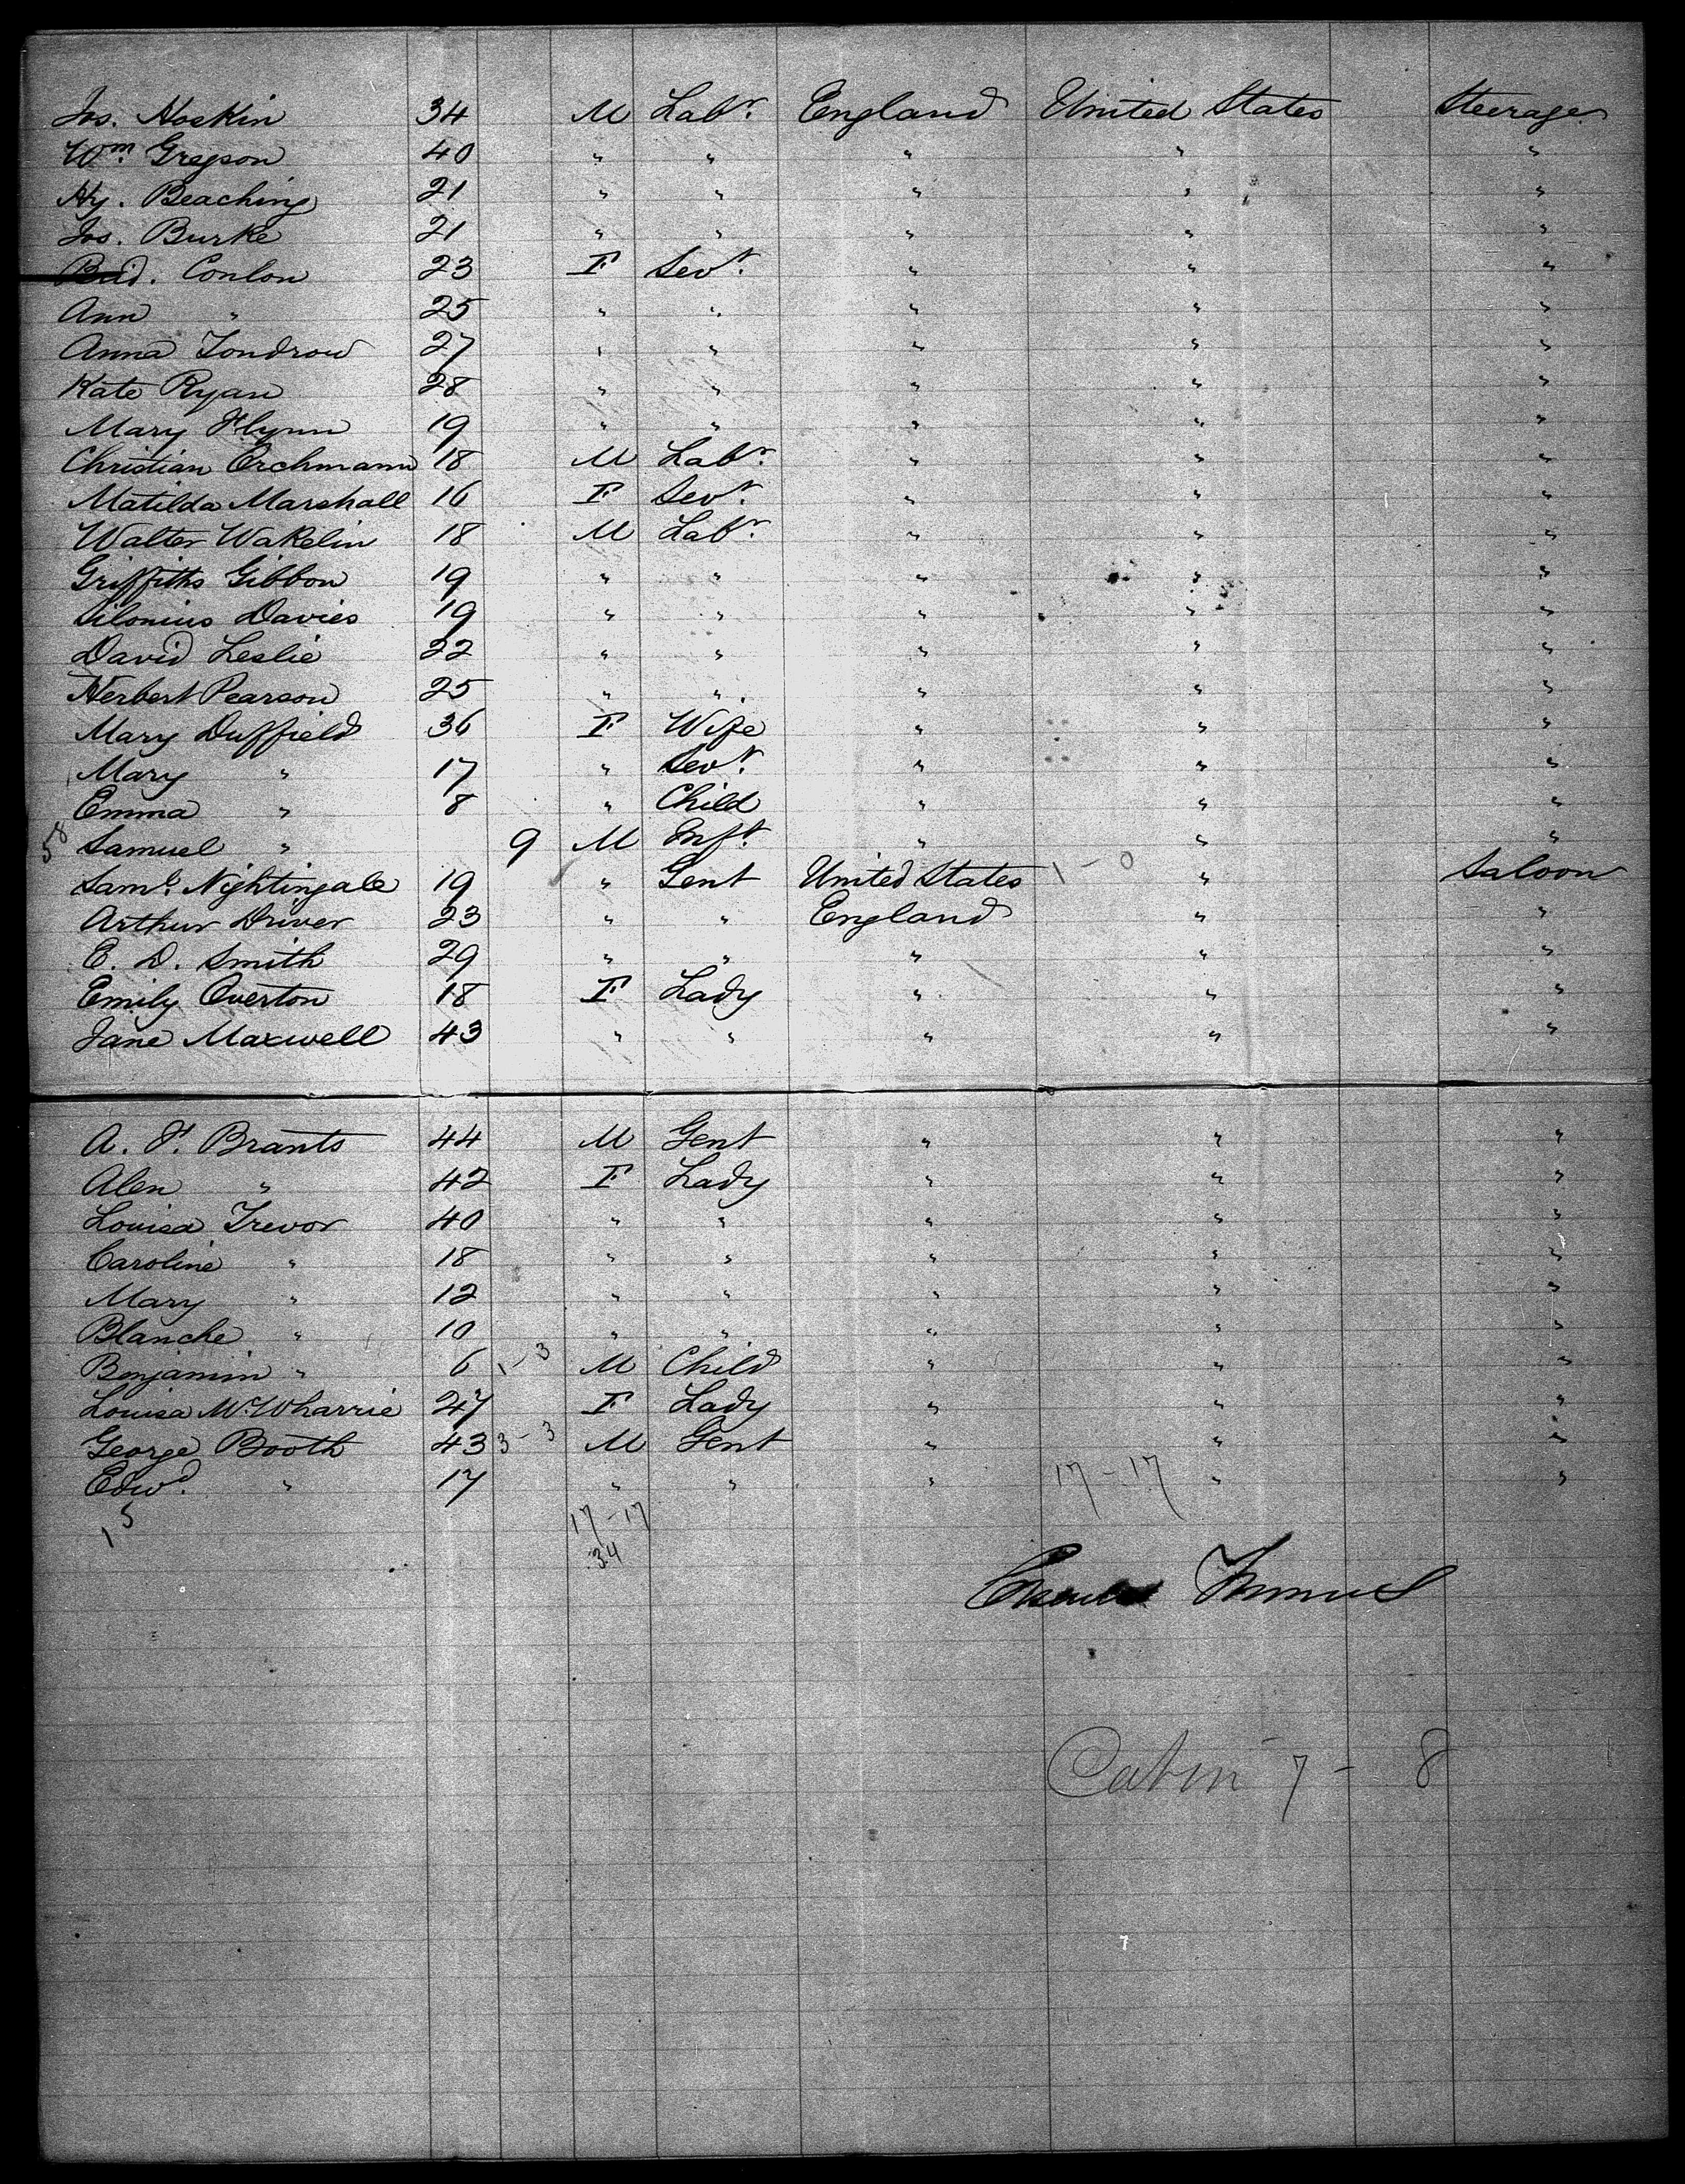 Jos. Hoskin 34 M Labr. England United States Steerage
Wm. Gregson 40 " " " " "
Hy. Beaching 21 " " " " "
Jos. Burke 21 " " " " "
Conlon 23 F Sevt. " " "
Ann " 25 " " " " "
Anna Tondrow 27 " " " " "
Kate Ryan 28 " " " " "
Mary Flynn 19 " " " " "
Christian Erchmann 18 M Labr. " " "
Matilda Marshall 16 F Sevt. " " "
Walter Wakelin 18 M Labr. " " "
Griffiths Gibbon 19 " " " " "
Silonius Davies 19 " " " " "
David Leslie 22 " " " " "
Herbert Pearson 25 " " " " "
Mary Duffield 36 F Wife " " "
Mary " 17 " Sevt. " " "
Emma " 8 " Child " " "
58 Samuel " 9 M Inft. " " "
Saml. Nightingale 19 " Gent United States 1-0 " Saloon
Arthur Driver 23 " " England " "
E. D. Smith 29 " " " " "
Emily Overton 18 F Lady " " "
Jane Maxwell 43 " " " " "
A. F. Brants 44 M Gent " " "
Alen " 42 F Lady " " "
Louisa Trevor 40 " " " " "
Caroline " 18 " " " " "
Mary " 12 " " " " "
Blanche " 10 " " " " "
Benjamin " 6 1-3 M Child " " "
Louisa McWharrie 27 F Lady " " "
George Booth 43 3-3 M Gent " " "
Edwd. " 17 " " " 17-17 " "
15 17-17
34
Cabin 7 - 8
7